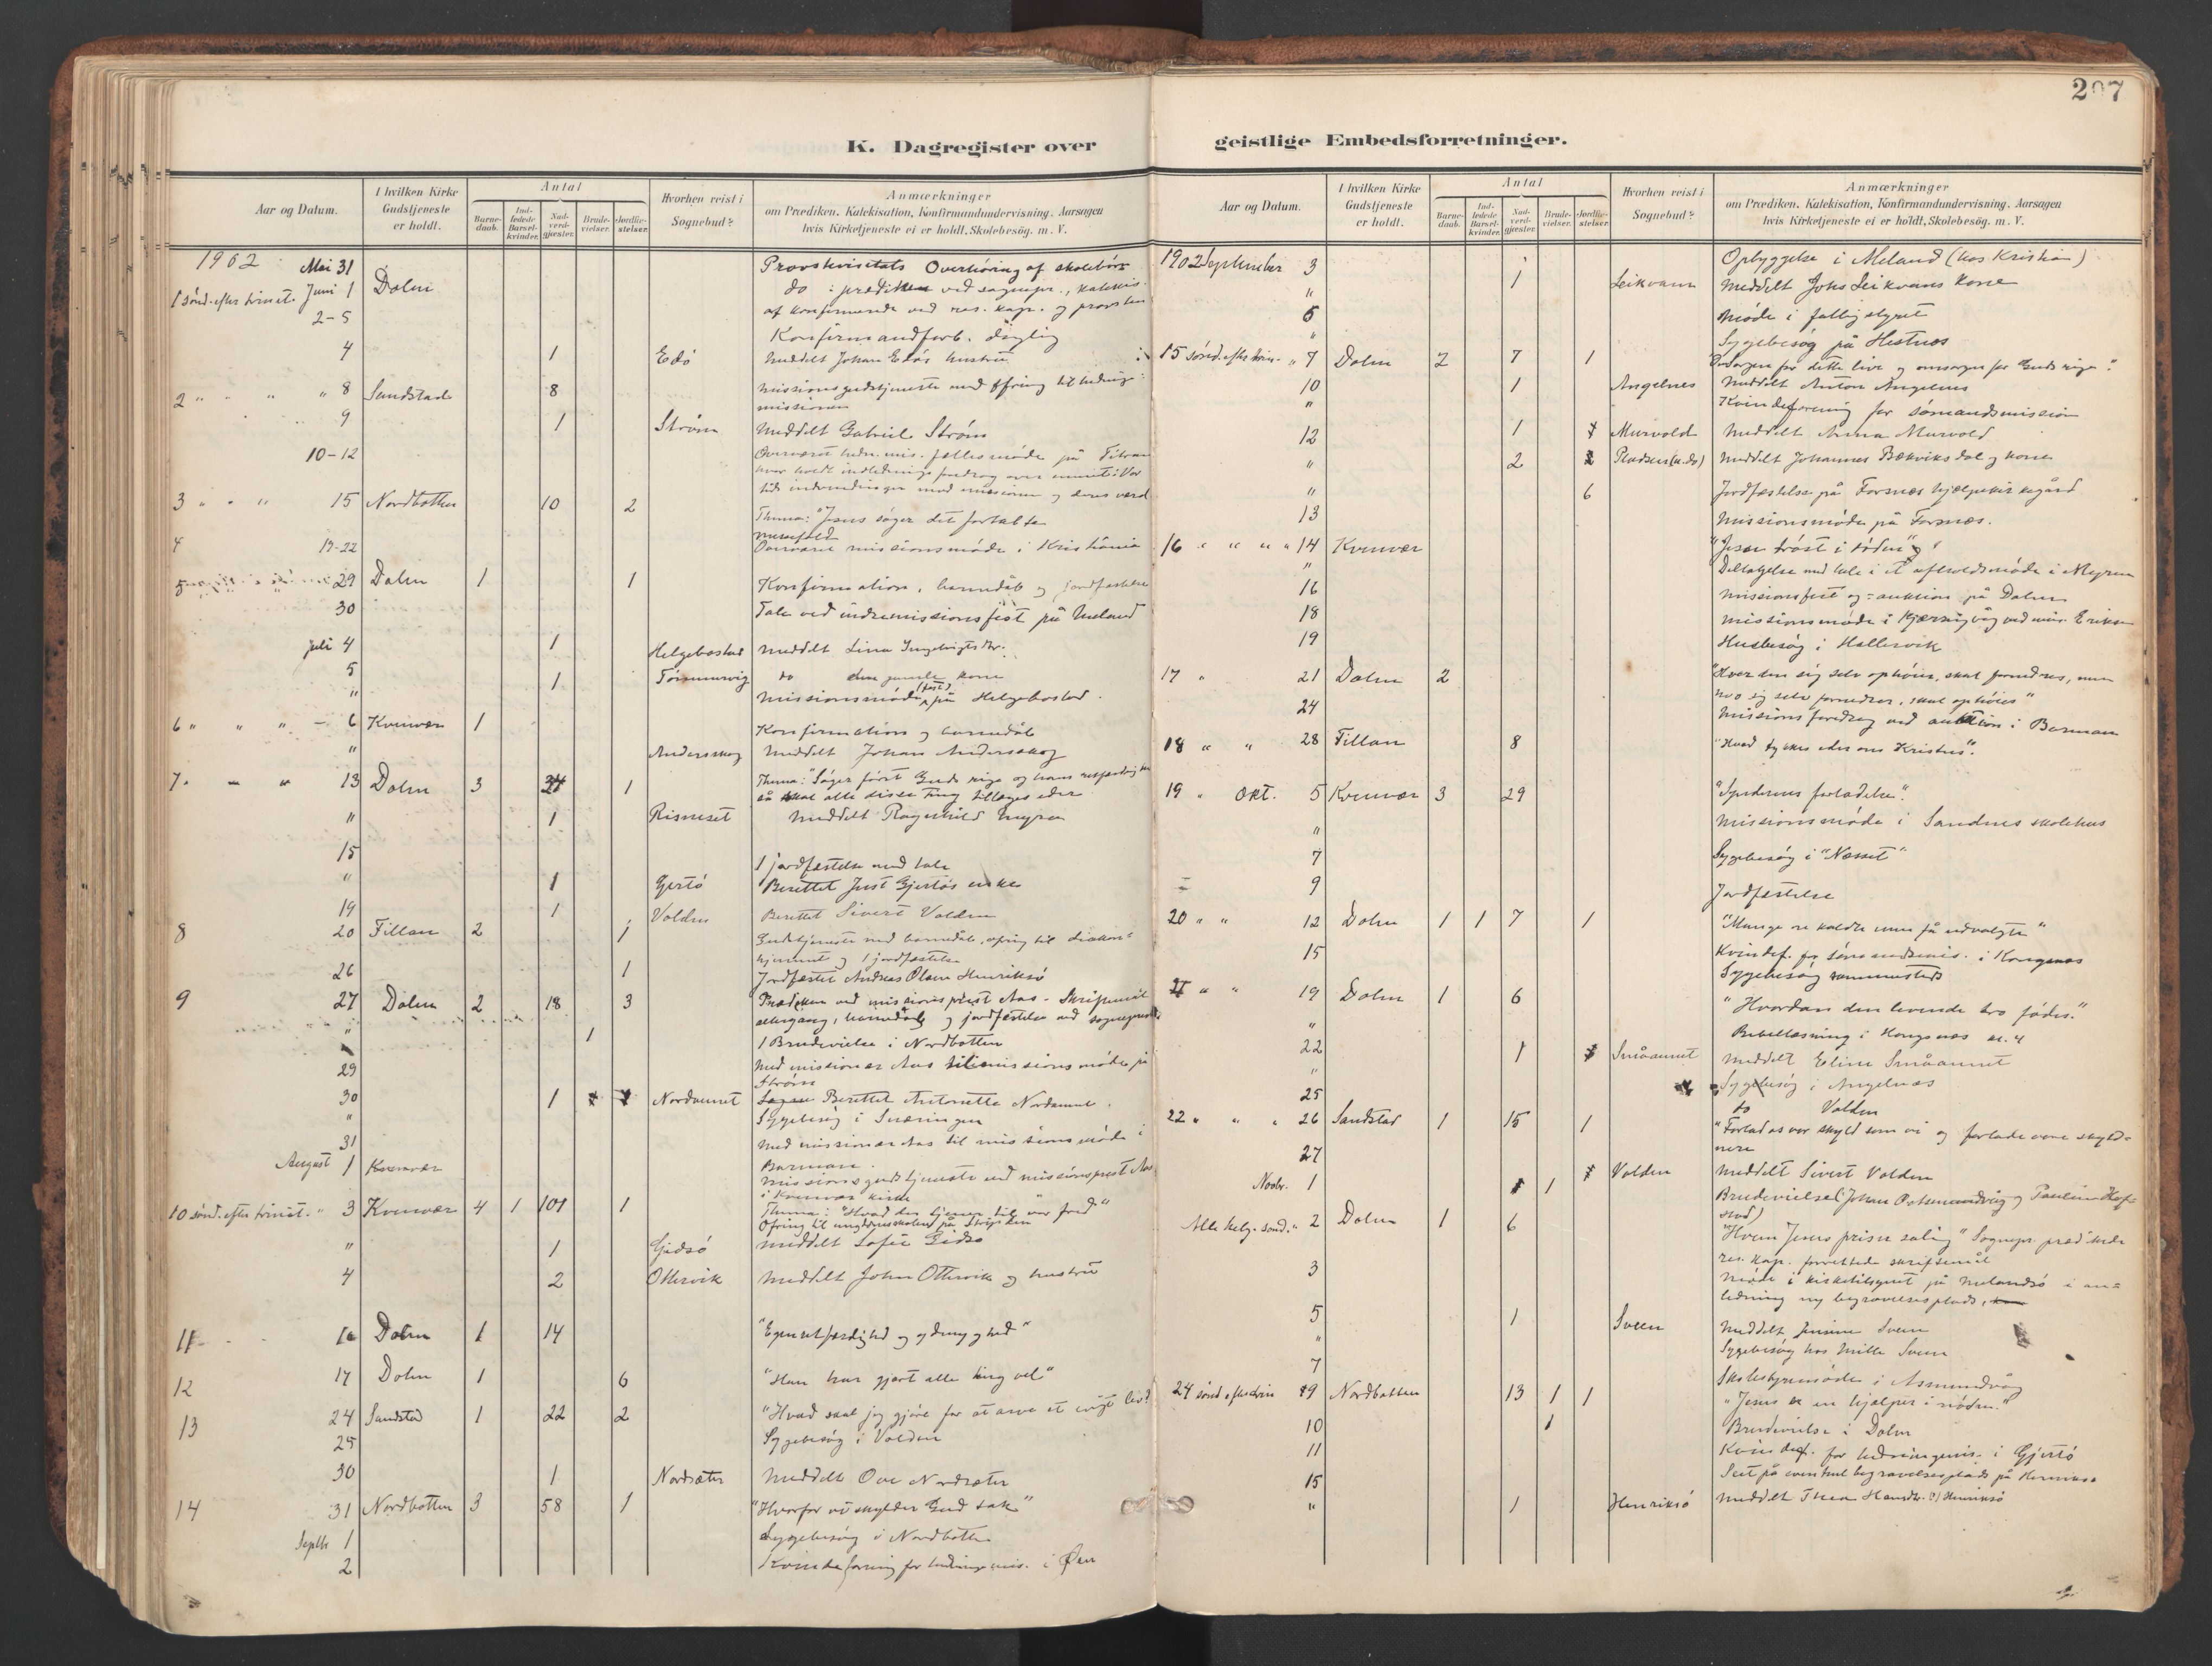 207
K. Dagregister over
geistlige Embedsforretninger.
Aar og Datum.
I hvilken Kirke Gudstjeneste er holdt.
Antal
Barne-daab.
Ind-ledede Barsel-kvinder.
Nad-verd-gjæster.
Brude-vielser.
Jordfæ-stelser.
Hvorhen reist i Sognebud?
Anmærkninger
om Prædiken, Katekisation, Konfirmandundervisning. Aarsagen
hvis Kirketjeneste ei er holdt, Skolebesøg. m. V.
1902 Mai 31 Provstevisitats Overhøring af skolebørn
1 sønd. efter trinit. Juni 1 Dolm do : prædiken ved sognepr., katekis.
af konfirmerede ved res. kap. og provsten
2-5 Konfirmandforb. daglig
4 1 Edø Meddelt Johan Edøs hustru
2 " " " 8 Sandstad 8 Missionsgudstjeneste med offring til hedninge-
missionen
9 1 Strøm Meddelt Gabriel Strøm
10-12 Overværet hedn. mis. fællesmøde på Titran
3 " " " 15 Nordbotten 10 2 Thema: "Jesus søger det fortabte
4 19-22 Overværet missionsmøde i Kristiania
5 29 Dolm 1 1 Konfirmation, barnedåb og jordfæstelse
30 Tale ved indremissionsfest på Meland
Juli 4 1 Helgebostad Meddelt Lina Ingebrigtsdtr.
5 1 do den gamle kone
" Missionsmøde (fest) på Helgebostad.
6 " " " - 6 Kvenvær 1 Konfirmation og barnedåb
" Andersskog Meddelt Johan Andersskog
7 " - " 13 Dolm 3 1 Thema: "Søger først Guds rige og hans retfærdighed
så skal alle disse ting tillægges eder
" 1 Risneset Meddelt Ragnhild Myren
15 1 jordfæstelse med tale
" 1 Gjertø Berettet Just Gjertøs enke
19 1 Volden Berettet Sivert Volden
8 20 Fillan 2 1 Gudstjeneste med barnedåb, ofring til diakon-
hjemmet og 1 jordfæstelse
26 1 Jordfæstet Andreas Olsen Henriksø
9 27 Dolm 2 18 3 Prædiken ved missionsprest Aas - Skriftemål
altergang, barnedåb og jordfæstelse ved sognepresten
" 1 1 Brudevielse i Nordbotten
29 Med missionær Aas til missionsmøde på
Strøm
30 1 Nordannet Berettet Antonette Nordannet.
" Sygebesøg i
31 Med missionær Aas til missionsmøde i
Barman.
August 1 Kvenvær Missionsgudstjeneste ved missionsprest Aas
i Kvenvær kirke
10 sønd. efter trinit. " 3 Kvenvær 4 1 101 1 Thema: "Hvad der tjener til vor fred"
Ofring til ungdomsskolen på
" 1 Gjedsø Meddelt Sofie Gjedsø
4 2 Ottervik Meddelt John Ottervik og hustru
11 " - 10 Dolm 1 14 "Egenretfærdighed og ydmyghed"
12 17 Dolm 1 6 "Han har gjort alle ting vel"
13 24 Sandstad 1 22 2 "Hvad skal jeg gjøre for at arve et evigt liv?
25 Sygebesøg i Volden
30 1 Nordsæter Meddelt Ove Nordsæter
14 31 Nordbotten 3 58 1 "Hvorfor vi skylder Gud tak"
Septbr 1 Sygebesøg i Nordbotten
2 Kvindeforening for hedningemis. i Øen
Aar og Datum.
I hvilken Kirke Gudstjeneste er holdt.
Antal
Barne-daab.
Ind-ledede Barsel-kvinder.
Nad-verd-gjæster.
Brude-vielser.
Jordfæ-stelser.
Hvorhen reist i Sognebud?
Anmærkninger
om Prædiken, Katekisation, Konfirmandundervisning. Aarsagen
hvis Kirketjeneste ei er holdt, Skolebesøg. m. V.
1902 September 3 Opbyggelse i Meland (hos Kristian)
" 1 Leikvam Meddelt Johs Leikvams kone
5 Møde i fattigstyret
" Sygebesøg på Hestnes
15 sønd. efter trin. " 7 Dolm 2 7 1 Omsorgen for dette liv og omsorgen for Guds rige".
10 1 Angelnes Meddelt Anton Angelnes
" Kvindeforening for sømandsmission
12 1 Murvold Meddelt Anna Murvold
" 2 Meddelt Johannes Bækviksdal og kone
" 6 Jordfæstelse på Forsnes hjælpekirkegård
13 Missionsmøde på Forsnes.
16 " " " " 14 Kvenvær "Jesu trøst i nøden"
" Deltagelse med tale i et afholdsmøde i Myren
16 Missionsfest og -auktion på Dolm
18 Missionsmøde i Kjærringvåg ved miss. Eriksen
19 Husbesøg i Hallervik
17 " 21 Dolm 2 "Hver den sig selv ophøier, skal fornedres, men
hvo sig selv fornedrer, skal ophøies"
24 Missionsforedrag ved auktion i Barman
18 " " 28 Fillan 8 "Hvad tykkes eder om Kristus".
19 " Okt. 5 Kvenvær 3 29 "Syndernes forladelse".
" Missionsmøde i Sandnes skolehus
7 Sygebesøg i "Næsset"
9 Jordfæstelse
20 " " 12 Dolm 1 1 7 1 "Mange ere kaldte men få udvalgte"
15 Kvindef. for sømandsmis. i Kongsnæs
Sygebesøg sammesteds
21 " " 19 Dolm 1 6 "Hvordan den levende tro fødes."
" Bibellæsning i
22 1 Småannet Meddelt Eline Småannet
" Sygebesøg i Angelnæs
25 do Volden
22 " " " 26 Sandstad 1 15 1 "Forlad os vor skyld som vi og forlade vore skyld-
nere
27 Volden Meddelt Sivert Volden
Novbr. 1 1 Brudevielse (Johan og Pauline Hof-
stad)
Alle helg. sønd. " 2 Dolm 1 6 "Hvem Jesus priser salig" Sognepr. præd
res. kap. forrettede skriftemål
3 Møde i kirketilsynet på Melandsø i an-
ledning ny begravelsesplads,
5 1 Sveen Meddelt Jensine Sveen
" Sygebesøg hos Mille Sveen
7 Skolestyremøde i Asmundvåg
24 sønd. efter trin 9 Nordbotten 13 1 1 "Jesus er en hjælper i nøden."
10 1 Brudevielse i Dolm
11 Kvindef. for hedningemis. i Gjertø
15 Seet på eventuel begravelsesplads på
" 1 Henriksø Meddelt Thea Henriksø